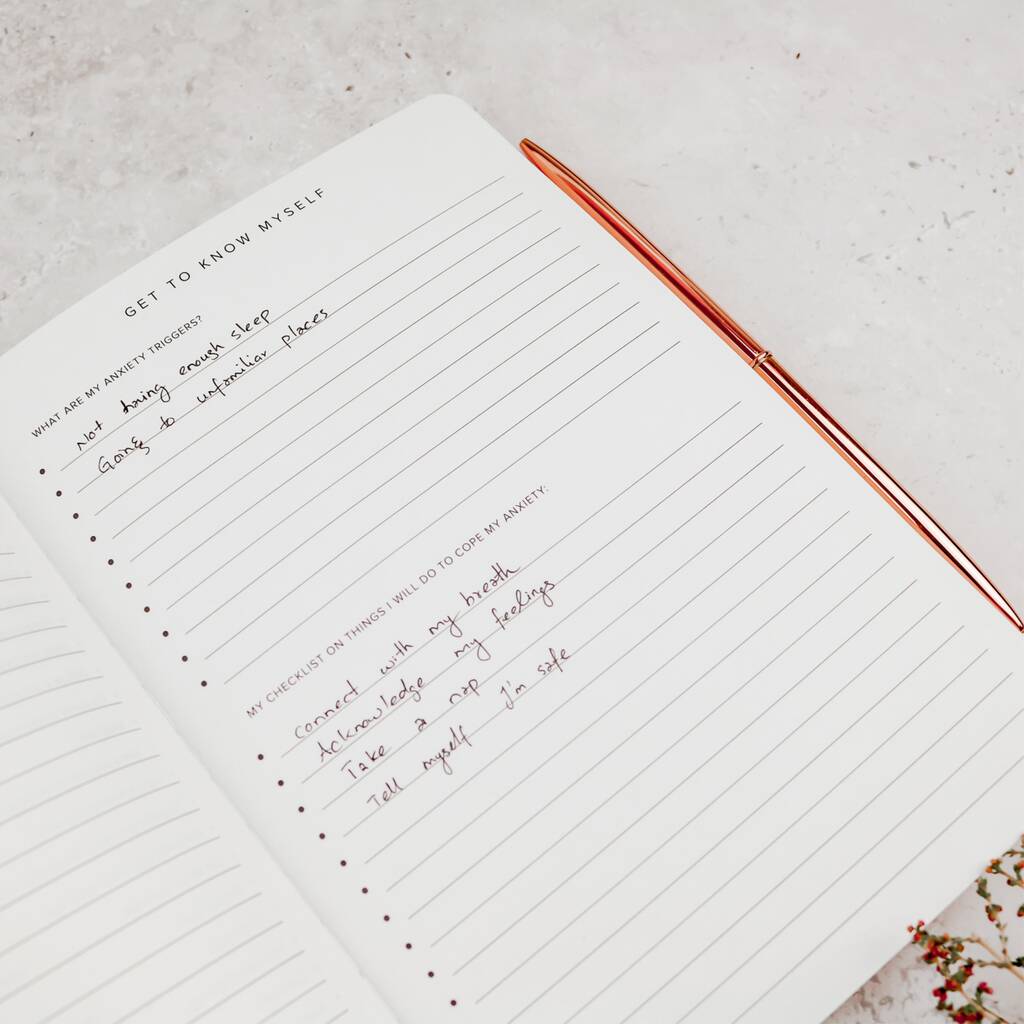 GET TO KNOW MYSELF
WHAT ARE MY ANXIETY TRIGGERS?
Not having enough sleep
Going to unfamiliar places
MY CHECKLIST ON THINGS I WILL DO TO COPE MY ANXIETY:
Connect with my breath
Acknowledge my feelings
Take a nap
Tell myself I'm safe